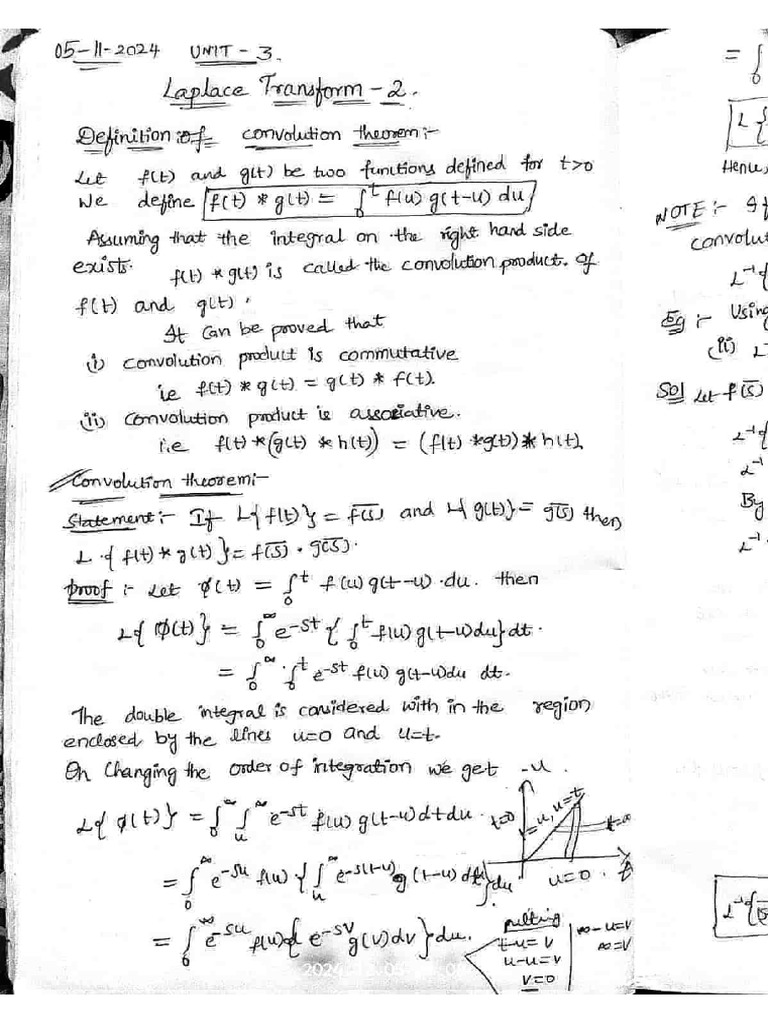 05-11-2024 UNIT - 3.
Laplace Transform - 2.
Definition of convolution theorem:-
Let f(t) and g(t) be two functions defined for t>0
We define f(t) * g(t) = ∫₀^t f(u) g(t-u) du
Assuming that the integral on the right hand side
exists. f(t) * g(t) is called the convolution product. of
f(t) and g(t).
It can be proved that
(i) convolution product is commutative
ie f(t) * g(t) = g(t) * f(t).
(ii) convolution product is associative.
i.e f(t) * (g(t) * h(t)) = (f(t) * g(t)) * h(t).
Convolution theorem:-
Statement:- If L{f(t)} = f̅(s) and L{g(t)} = g̅(s) then
L{f(t) * g(t)} = f̅(s) · g̅(s).
proof:- Let ϕ(t) = ∫₀^t f(u) g(t-u) · du. then
L{ϕ(t)} = ∫₀^∞ e^-st { ∫₀^t f(u) g(t-u) du} dt.
= ∫₀^∞ · ∫₀^t e^-st f(u) g(t-u) du dt.
The double integral is considered with in the region
enclosed by the lines u=0 and u=t.
On changing the order of integration we get
L{ϕ(t)} = ∫₀^∞ ∫ᵤ^∞ e^-st f(u) g(t-u) dt du.
= ∫₀^∞ e^-su f(u) { ∫ᵤ^∞ e^-s(t-u) g(t-u) dt} du
= ∫₀^∞ e^-su f(u) { e^-sv g(v) dv} du.
u
t=0
u=t
u=0
t
putting
t-u=v
u-u=v
v=0
∞-u=v
∞=v
= ∫₀
L{
Hence,
NOTE:- If
convolut
L⁻¹{
Eg:- Using
(ii) L
Sol Let f̅(s)
L⁻¹{
L⁻¹
By
L⁻¹
L⁻¹{